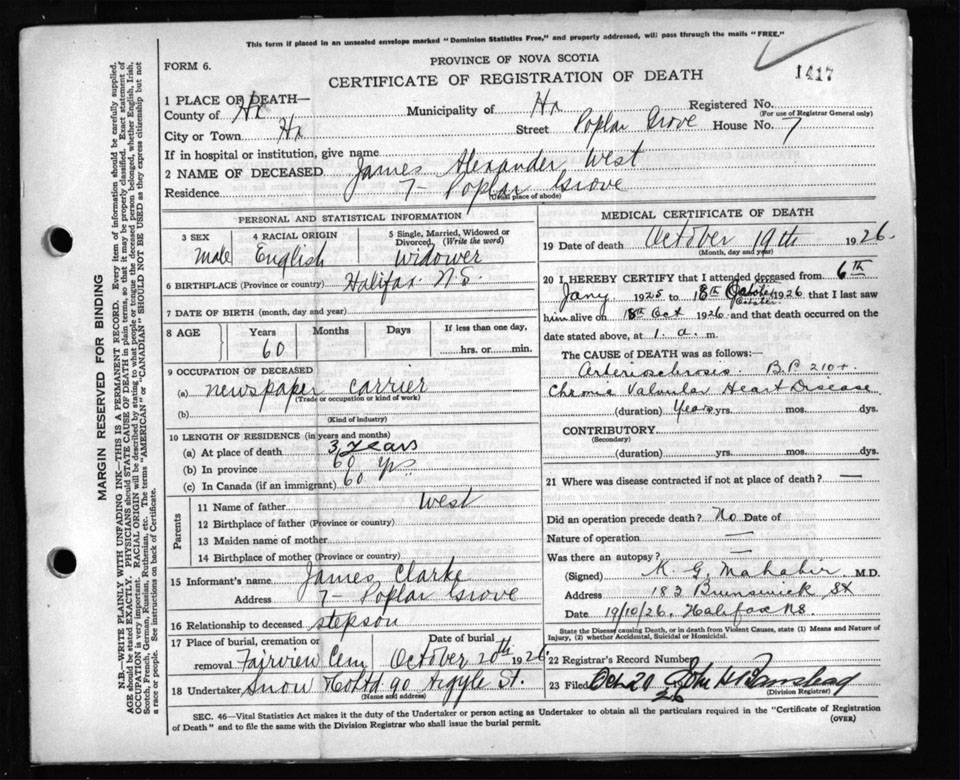 This form if placed in an unsealed envelope marked "Dominion Statistics Free," and properly addressed, will pass through the mails "FREE."
PROVINCE OF NOVA SCOTIA
FORM 6.
CERTIFICATE OF REGISTRATION OF DEATH
1417
1 PLACE OF DEATH—
County of Hx Municipality of Hx Registered No.
(For use of Registrar General only)
City or Town Hx Street Poplar Grove House No. 7
If in hospital or institution, give name
2 NAME OF DECEASED James Alexander West
Residence 7- Poplar Grove
(Usual place of abode)
PERSONAL AND STATISTICAL INFORMATION
3 SEX 4 RACIAL ORIGIN 5 Single, Married, Widowed or Divorced, (Write the word)
male English Widower
6 BIRTHPLACE (Province or country) Halifax N.S.
7 DATE OF BIRTH (month, day and year)
8 AGE Years Months Days If less than one day,
60 hrs. or min.
9 OCCUPATION OF DECEASED
(a) newspaper carrier
(Trade or occupation or kind of work)
(b)
(Kind of industry)
10 LENGTH OF RESIDENCE (in years and months)
(a) At place of death 3 years
(b) In province 60 yrs
(c) In Canada (if an immigrant) 60 yrs
Parents
11 Name of father West
12 Birthplace of father (Province or country)
13 Maiden name of mother
14 Birthplace of mother (Province or country)
15 Informant's name James Clarke
Address 7- Poplar Grove
16 Relationship to deceased stepson
17 Place of burial, cremation or Date of burial
removal Fairview Cem October 20th 1926
18 Undertaker Snow & Co Ltd 90 Argyle St.
(Name and address)
MEDICAL CERTIFICATE OF DEATH
19 Date of death October 19th 1926
(Month, day and year)
20 I HEREBY CERTIFY that I attended deceased from 6th
Jany 1925 to 18th October 1926 that I last saw
him alive on 18th Oct 1926 and that death occurred on the
date stated above, at 1. a. m.
The CAUSE OF DEATH was as follows:
Arteriosclerosis. B.P. 210+
Chronic Valvular Heart Disease
(duration) Years yrs. mos. dys.
CONTRIBUTORY
(Secondary)
(duration) yrs. mos. dys.
21 Where was disease contracted if not at place of death? —
Did an operation precede death? No Date of
Nature of operation —
Was there an autopsy? —
(Signed) K. G. Mahabir M.D.
Address 182 Brunswick St
Date 19/10/26. Halifax N.S.
State the Disease causing Death, or in death from Violent Causes, state (1) Means and Nature of Injury, (2) whether Accidental, Suicidal or Homicidal.
22 Registrar's Record Number
23 Filed Oct 20 26 John H
(Division Registrar)
SEC. 46—Vital Statistics Act makes it the duty of the Undertaker or person acting as Undertaker to obtain all the particulars required in the "Certificate of Registration
of Death" and to file the same with the Division Registrar who shall issue the burial permit. (OVER)
MARGIN RESERVED FOR BINDING
N.B.—WRITE PLAINLY WITH UNFADING INK—THIS IS A PERMANENT RECORD. Every item of information should be carefully supplied.
AGE should be stated EXACTLY. PHYSICIANS should STATE CAUSE OF DEATH in plain terms, so that it may be properly classified. Exact statement of
OCCUPATION is very important. RACIAL ORIGIN will be described by stating to what people or tongue the deceased person belonged, whether English, Irish,
Scotch, French, German, Russian, Ruthenian, etc. The terms "AMERICAN" or "CANADIAN" SHOULD NOT BE USED as they express citizenship but not
a race or people. See instructions on back of Certificate.